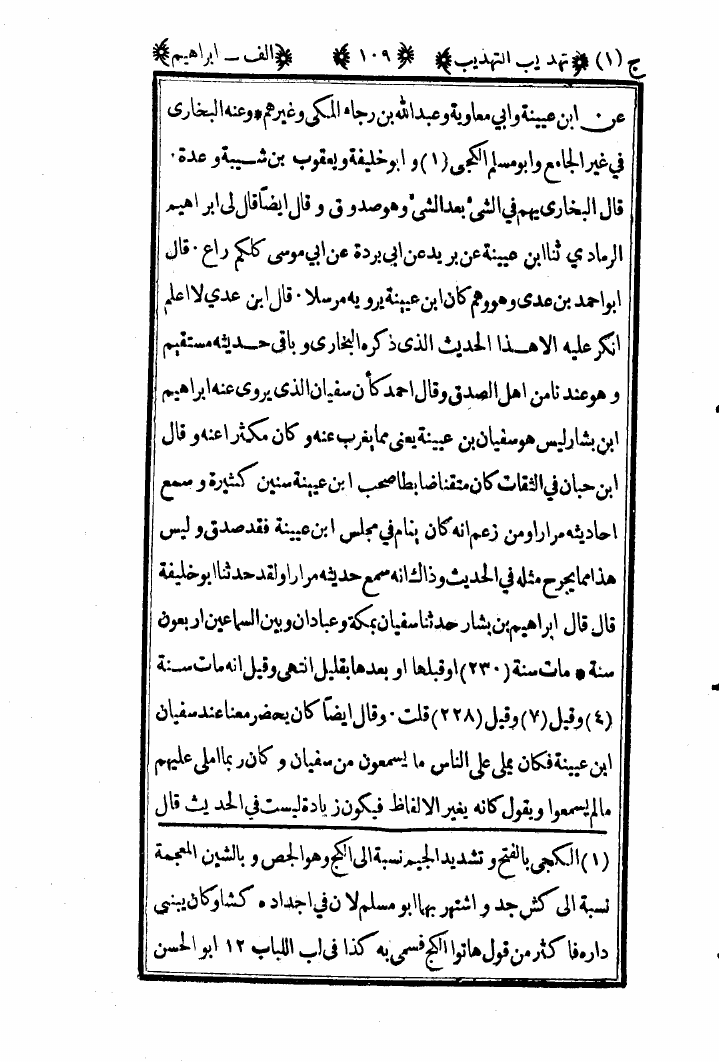 ج (١) تهذيب التهذيب ١٠٩ الف - ابراهيم
عن ابن عيينة وابي معاوية وعبد الله بن رجاء المكى وغيرهم * وعنه البخارى
في غير الجامع وابو مسلم الكجى (١) و ابو خليفة و يعقوب بن شيبة و عدة ٠
قال البخارى يهم في الشئ بعد الشئ وهو صدوق و قال ايضاً قال لى ابراهيم
الرمادي ثنا ابن عيينة عن بريد عن ابى بردة عن ابي موسى كلكم راع ٠ قال
ابو احمد بن عدى وهو وهم كان ابن عيينة يرويه مرسلا ٠ قال ابن عدي لا اعلم
انكر عليه الا هذا الحديث الذى ذكره البخارى و باقى حديثه مستقيم
و هو عندنا من اهل الصدق وقال احمد كأن سفيان الذى يروى عنه ابراهيم
ابن بشار ليس هو سفيان بن عيينة يعنى مما يغرب عنه و كان مكثرا عنه و قال
ابن حبان في الثقات كان متقنا ضابطا صحب ابن عيينة سنين كثيرة و سمع
احاديثه مرارا و من زعم انه كان ينام في مجلس ابن عيينة فقد صدق و ليس
هذا مما يجرح مثله في الحديث وذاك انه سمع حديثه مرارا ولقد حدثنا ابو خليفة
قال قال ابراهيم بن بشار حدثنا سفيان بمكة و عبادان و بين السماعين اربعون
سنة * مات سنة (٢٣٠) او قبلها او بعدها بقليل انتهى وقيل انه مات سنة
(٤) وقيل (٧) وقيل (٢٢٨) قلت ٠ وقال ايضاً كان يحضر معنا عند سفيان
ابن عيينة فكان يملى على الناس ما يسمعون من سفيان و كان ربما املى عليهم
مالم يسمعوا و يقول كانه يغير الالفاظ فيكون زيادة ليست في الحديث قال
(١) الكجى بالفتح و تشديد الجيم نسبة الى الكج وهو الجص و بالشين المعجمة
نسبة الى كش جد و اشتهر بها ابو مسلم لان في اجداده كشا وكان يبنى
داره فاكثر من قول هاتوا الكج فسمى به كذا في لب اللباب ١٢ ابو الحسن